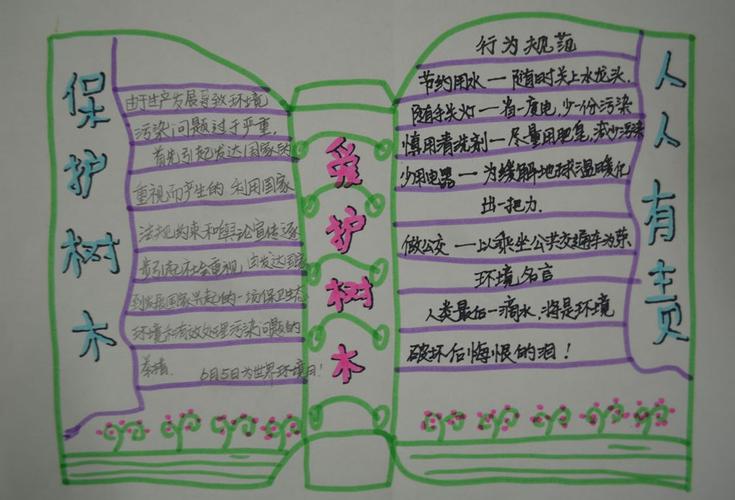 保护树木
由于生产发展导致环境
污染问题过于严重,
首先引起发达国家的
重视而产生的 利用国家
法规约束和舆论宣传逐
步引起社会重视,由发达国家
到发展国家兴起的一场保卫生态
环境和有效处理污染问题的
6月5日为世界环境日!
爱护树木
行为规范
节约用水—随时关上水龙头.
随手关灯—省一度电,少一份污染
慎用清洗剂—尽量用肥皂,减少污染
少用电器—为缓解地球温暖化
出一把力.
做公交—以乘坐公共交通车为荣.
环境名言
人类最后一滴水,将是环境
破坏后悔恨的泪!
人人有责